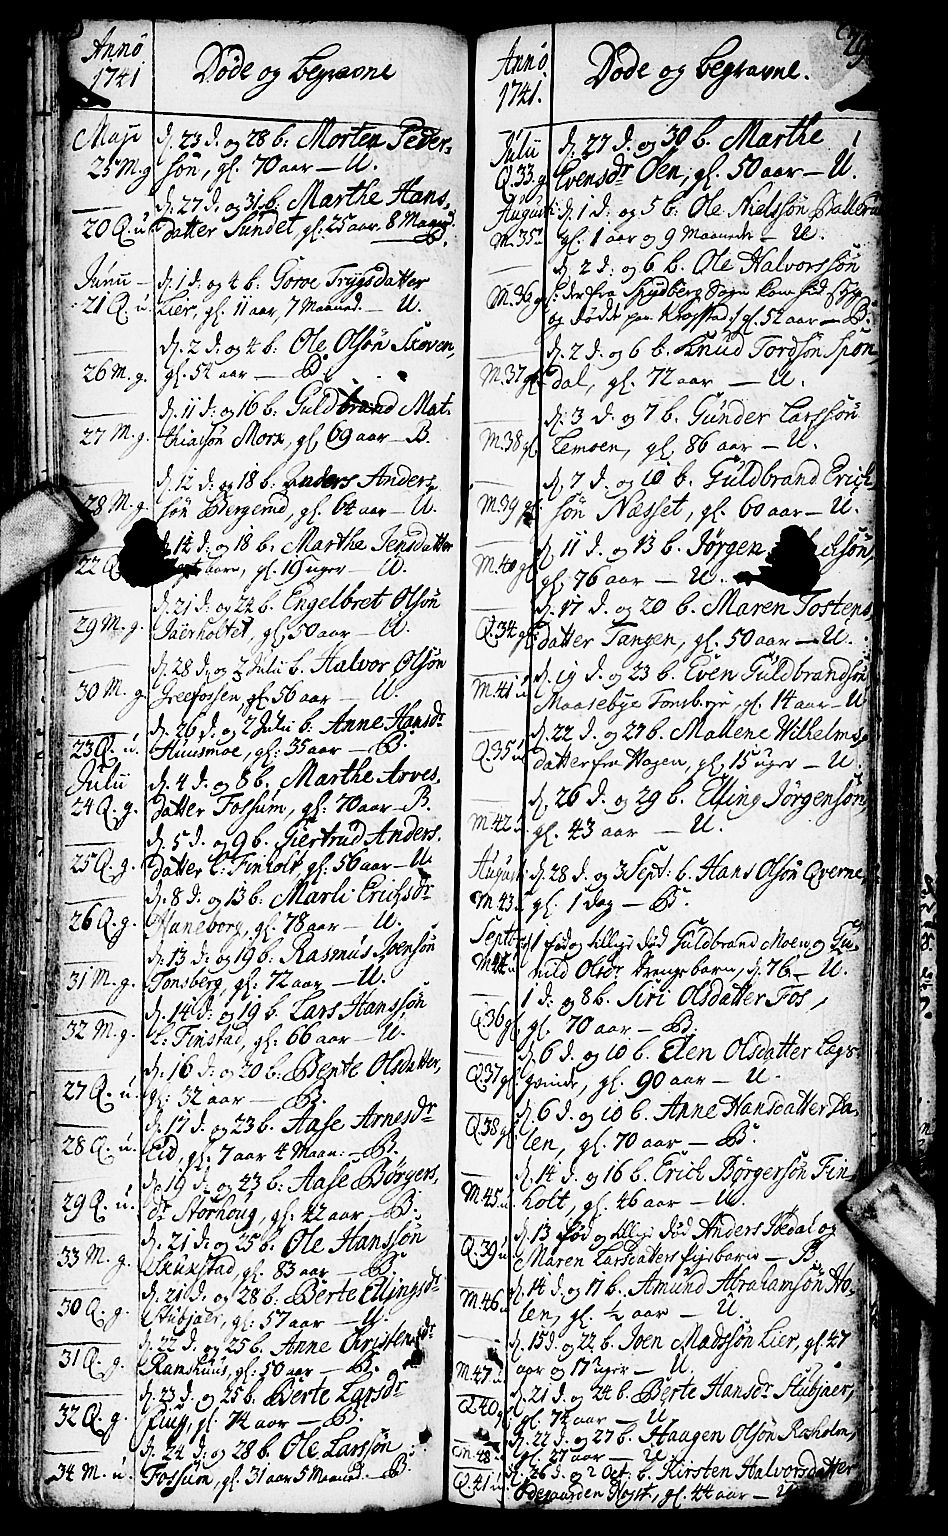 Anno
1741
Döde og begravne
Maji d. 23 d. og 28 b. Morten Peder=
25 M. g. sön, gl. 70 aar — U.
d. 27 d. og 31 b. Marthe Hans
20 Q. u. datter Sundet, gl. 25 aar 8 Maaned B.
Junii d. 1 d. og 4 b. Goroe Trygsdatter
21 Q. u. Lier, gl. 11 aar, 7 Maaned — U.
d. 2 d. og 4 b. Ole Olsön Skoven,
26 M. g. gl. 54 aar — B.
d. 11 d. og 16 b. Guldbrand Mat=
27 M. g. thiasön Morx, gl. 69 aar — B.
d. 12 d. og 18 b. Anders Anders=
28 M. g. sön Bergerud, gl. 64 aar — U.
d. 14 d. og 18 b. Marthe Jensdatter
22 Q. gl. 19 uger — U.
d. 21 d. og 24 b. Engelbret Olsön
29 M. g. Jaerholtet, gl. 50 aar — U.
d. 28 d. og 2 Julii b. Halvor Olsön
30 M. g. Greefossen, gl. 56 aar — U.
d. 26 d. og 2 Julii b. Anne Hansdr
23 Q. u. Huusmoe, gl. 35 aar — B.
Julii d. 4 d. og 8 b. Marthe Arves
24 Q. g. datter Fossum, gl. 70 aar — B.
d. 5 d. og 9 b. Giertrud Anders
25 Q. g. datter L. Finholt, gl. 56 aar — U.
d. 8 d. og 13 b. Marli Erichsdr
26 Q. g. Haneborg, gl. 78 aar — U.
d. 13 d. og 19 b. Rasmus Joensön
31 M. g. Tonsberg, gl. 72 aar — U.
d. 14 d. og 19 b. Lars Hanssön
32 M. g. L. Finstad, gl. 66 aar — U.
d. 16 d. og 20 b. Bente Olsdatter,
27 Q. u. gl. 32 aar — B.
d. 17 d. og 23 b. Aase Arnesdr
28 Q. u. Eid, gl. 7 aar 4 Maan. — B.
d. 19 d. og 23 b. Aase Börgers
29 Q. u. dr Storhoug, gl. 42 aar — B.
d. 21 d. og 25 b. Ole Hanssön
33 M. g. Krukstad, gl. 83 aar — B.
d. 21 d. og 28 b. Berte Ellingsdr
30 Q. g. Stubjaer, gl. 57 aar — U.
d. 22 d. og 25 b. Anne Christensdr
31 Q. g. Ramshuus, gl. 50 aar — B.
d. 23 d. og 25 b. Berte Larsdr
32 Q. g. gl. 74 aar — B.
d. 24 d. og 28 b. Ole Larssön
34 M. u. Fossum, gl. 31 aar 5 Maaned — B.
Anno
1741.
Döde og begravne.
Julii d. 27 d. og 30 b. Marthe
Q. 33 g. Evensdr Oen, gl. 50 aar — U.
Augusti d. 1 d. og 5 b. Ole Nielssön
M. 35 gl. 1 aar og 9 Maaneder — U.
d. 2 d. og 6 b. Ole Halvorssön
M. 36 g. der fra Skydberg Sogn kom hid
og döde paa Krogstad, gl. 52 aar — B.
d. 2 d. og 6 b. Knud Tordsön Spon
M. 37 g. dal, gl. 72 aar — U.
d. 3 d. og 7 b. Gunder Larssön
M. 38 g. Lemoen, gl. 86 aar — U.
d. 7 d. og 10 b. Guldbrand Erich
M. 39 g. sön Næsset, gl. 60 aar — U.
d. 11 d. og 13 b. Jörgen
M. 40 g. gl. 76 aar — U.
d. 17 d. og 20 b. Maren Tostens
Q. 34 g. datter Tangen, gl. 50 aar — U.
d. 19 d. og 23 b. Even Guldbrandsön
M. 41 u. Maasebye Tonsberg, gl. 14 aar — U
d. 22 d. og 27 b. Mallene Wilhelms
Q. 35 u. datter fra Hagen, gl. 15 uger — U.
d. 26 d. og 29 b. Elling Jörgensön,
M. 42 gl. 43 aar — U.
Augusti d. 28 d. og 3 Sept. b. Hans Olsön Qverne
M. 43 gl. 1 dag — B.
Septb. föd og tillige död Guldbrand Moen og Gu=
M. 44 u. nild Olsdr Drengebarn, d. 7 b. — U.
1 d. og 8 b. Siri Olsdatter Fos,
Q. 36 g. gl. 70 aar — B.
d. 6 d. og 10 b. Elen Olsdatter Lægs=
Q. 37 g. qvinde, gl. 90 aar — U.
d. 6 d. og 10 b. Anne Hansdatter Da=
Q. 38 g. len, gl. 70 aar — B.
d. 14 d. og 16 b. Erich Börgersön Fin=
M. 45. holt, gl. 46 aar — U
d. 13 föd og tillige död Anders Ödedal og
Q. 39 u. Maren Larsdatters Pigebarn — B.
d. 14 d. og 17 b. Amund Abrahamsön Ho=
M. 46 u. len, gl. ½ aar — U
d. 15 d. og 22 b. Iven Madssön Lier, gl. 47
M. 47 aar og 17 uger — U.
d. 21 d. og 24 b. Berte Hansdr Stubjaer,
Q. 40 g. gl. 74 aar — U
d. 22 d. og 27 b. Haagen Olsön Roxholm,
M. 48 gl. 27 aar — U
d. 26 d. og 2 Oct. b. Kirsten Halvorsdatter
Q. 41 u. Ödegaarden, gl. 44 aar — U